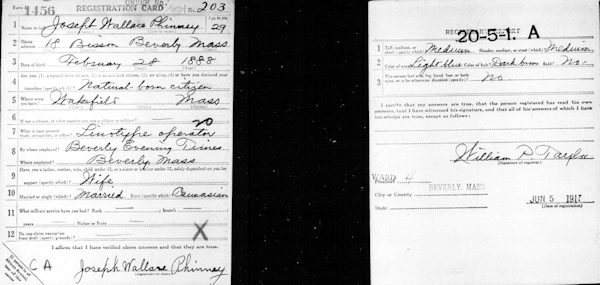 Form 1456 REGISTRATION CARD No. 203
1 Name in full Joseph Wallace Phinney Age, in yrs. 29
2 Home address 18 Bisson Beverly Mass
3 Date of birth February 28 1888
4 Are you (1) a natural-born citizen, (2) a naturalized citizen, (3) an alien, (4) or have you declared your intention (specify which)? Natural born citizen
5 Where were you born? Wakefield Mass
6 If not a citizen, of what country are you a citizen or subject?
7 What is your present trade, occupation, or office? Linotype operator 20
8 By whom employed? Beverly Evening Times
Where employed? Beverly Mass
9 Have you a father, mother, wife, child under 12, or a sister or brother under 12, solely dependent on you for support (specify which)? Wife
10 Married or single (which)? Married Race (specify which)? Caucasian
11 What military service have you had? Rank branch
years Nation or State
12 Do you claim exemption from draft (specify grounds)? X
I affirm that I have verified above answers and that they are true.
C A Joseph Wallace Phinney
REGISTRAR'S REPORT
20-5-1. A
1 Tall, medium, or short (specify which)? Medium Slender, medium, or stout (which)? Medium
2 Color of eyes? Light blue Color of hair? Dark brown Bald? No.
3 Has person lost arm, leg, hand, foot, or both eyes, or is he otherwise disabled (specify)? No
I certify that my answers are true, that the person registered has read his own answers, that I have witnessed his signature, and that all of his answers of which I have knowledge are true, except as follows:
William P. Taylor
(Signature of registrar)
WARD 4
Precinct
City or County BEVERLY, MASS.
State JUN 5 1917
(Date of registration)